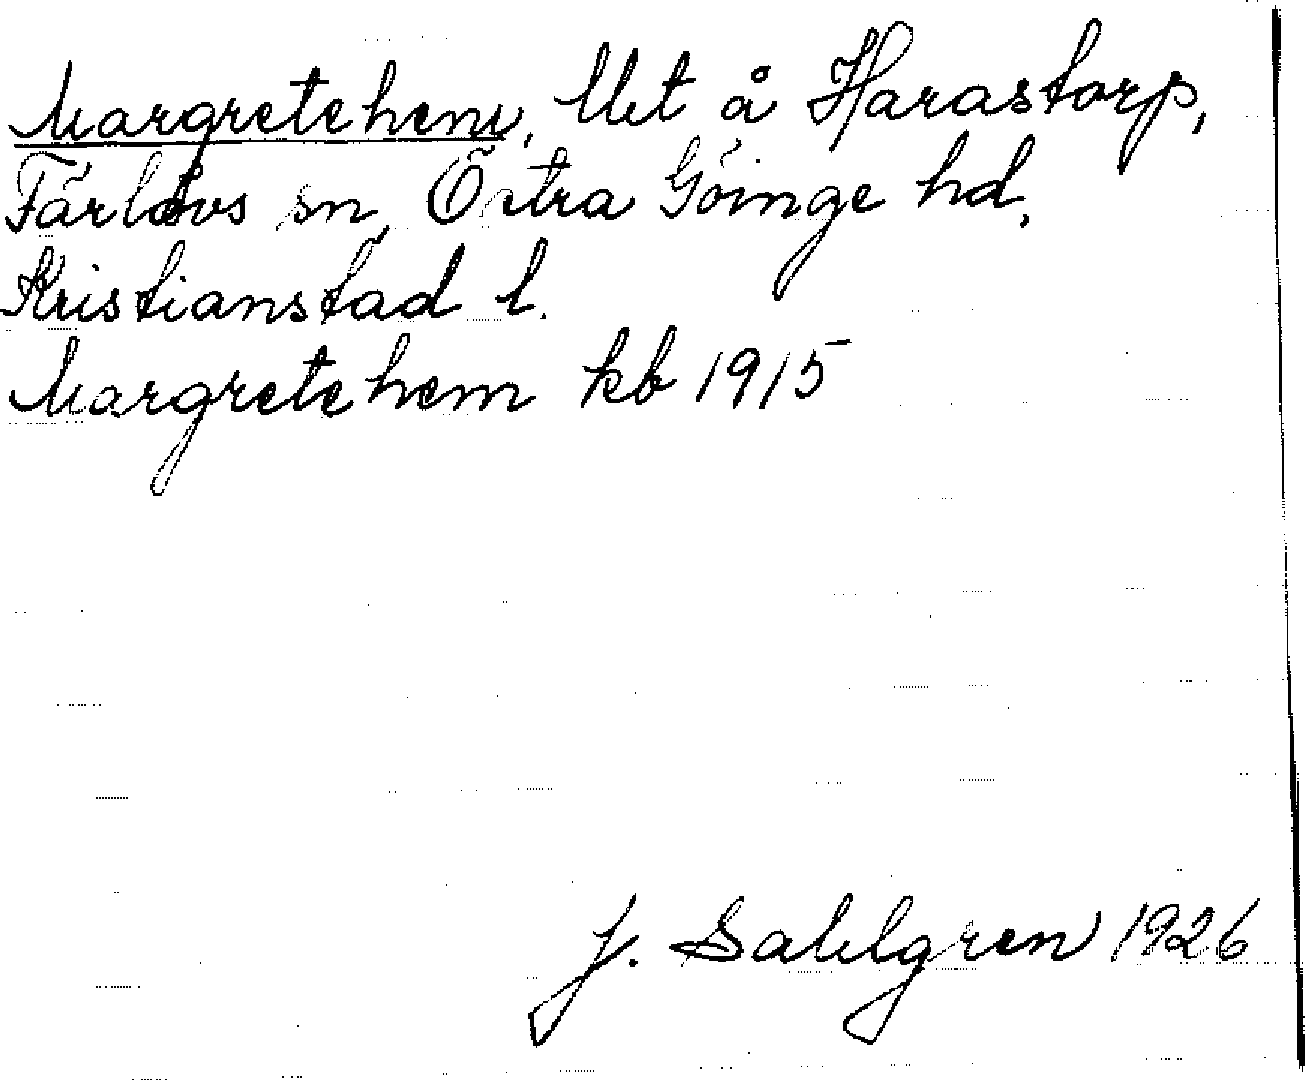 Margretehem, Uet å Harastorp,
Färlövs sn, Östra Göinge hd,
Kristianstad l.
Margretehem kb 1915
J. Sahlgren 1926